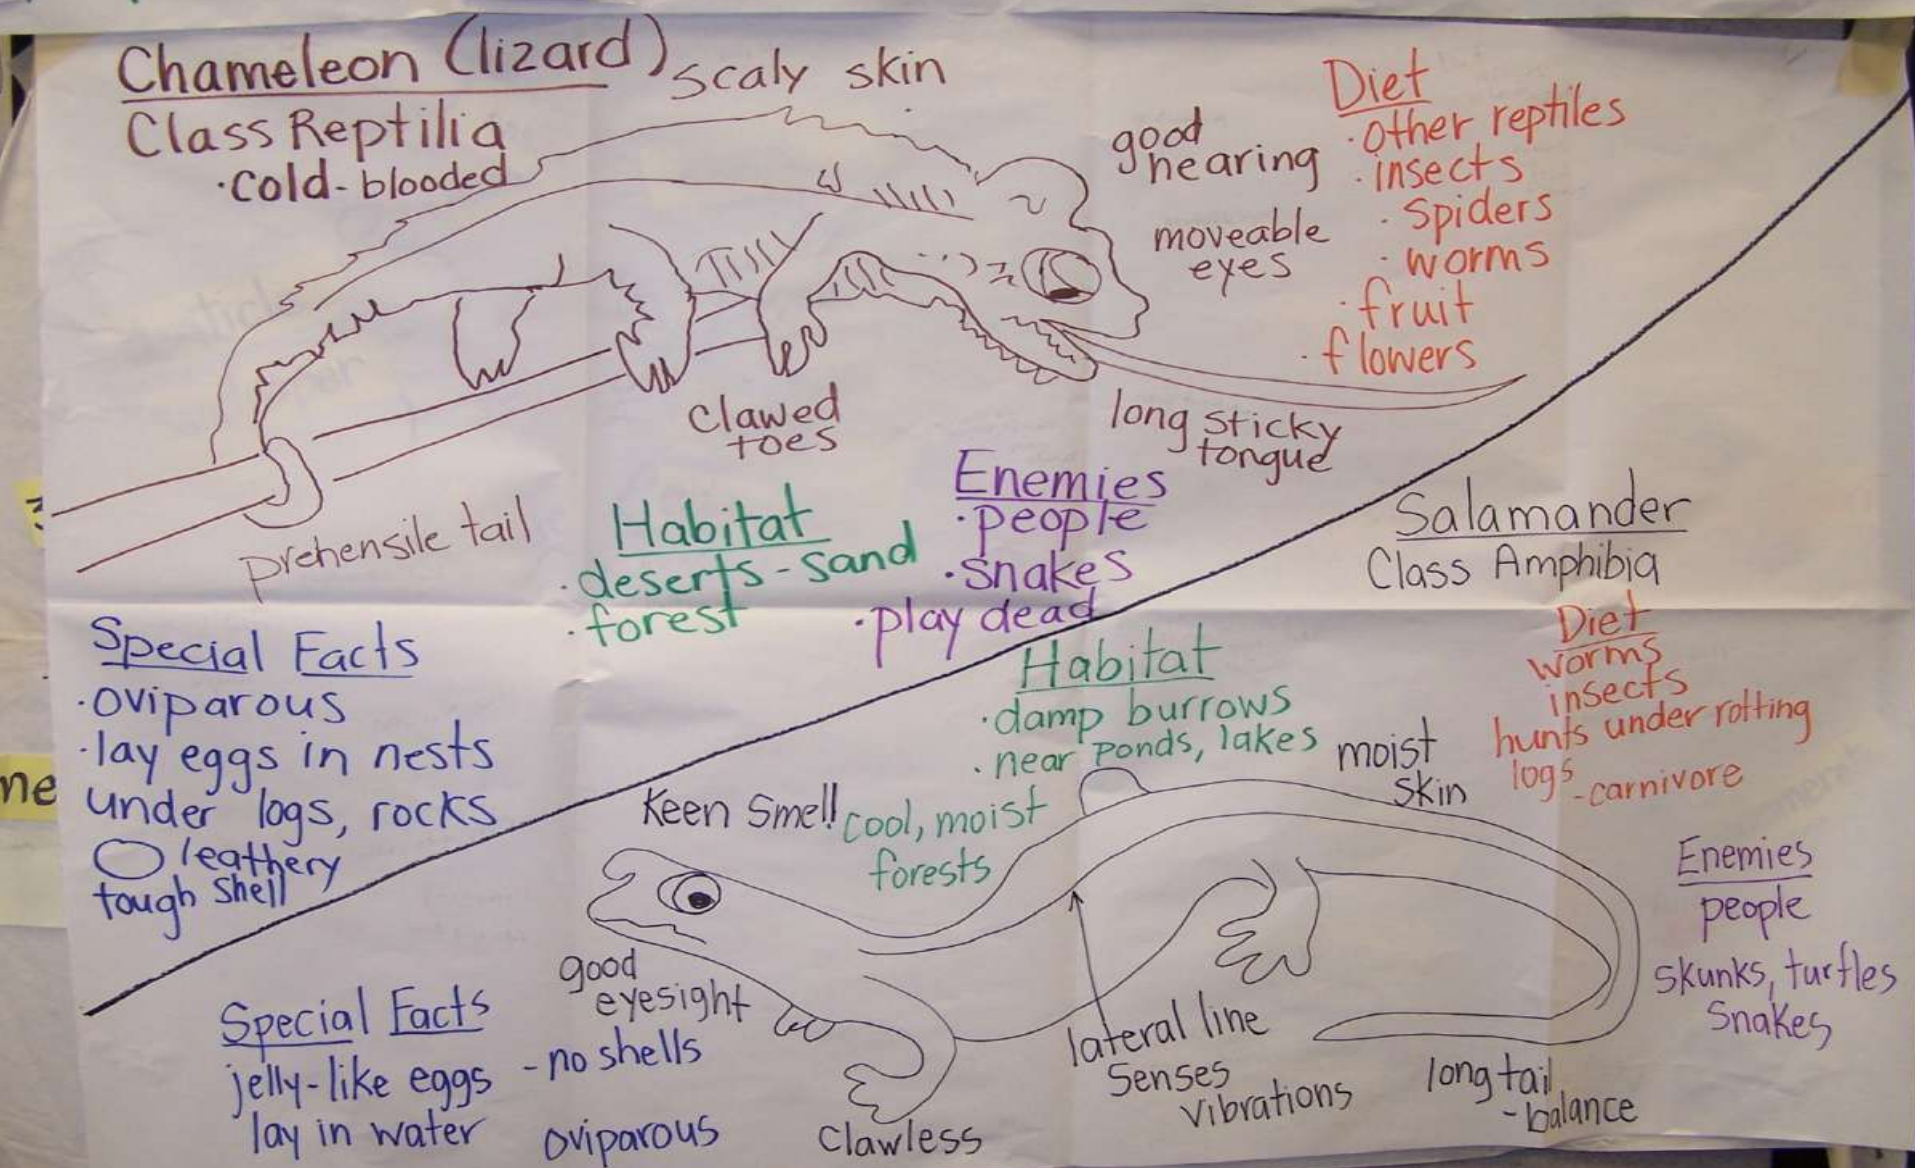 Chameleon (lizard)
Class Reptilia
·cold-blooded
scaly skin
good
hearing
moveable
eyes
Diet
·other reptiles
·insects
·spiders
·worms
·fruit
·flowers
Clawed
toes
long sticky
tongue
prehensile tail
Habitat
·deserts-sand
·forest
Enemies
·people
·snakes
·play dead
Special Facts
·oviparous
·lay eggs in nests
under logs, rocks
leathery
tough shell
Salamander
Class Amphibia
Habitat
·damp burrows
·near ponds, lakes
cool, moist
forests
Diet
worms
insects
hunts under rotting
logs -carnivore
moist
skin
Keen Smell
good
eyesight
Enemies
people
skunks, turtles
Snakes
Special Facts
jelly-like eggs - no shells
lay in water
oviparous
Clawless
lateral line
senses
vibrations
long tail
-balance
ne